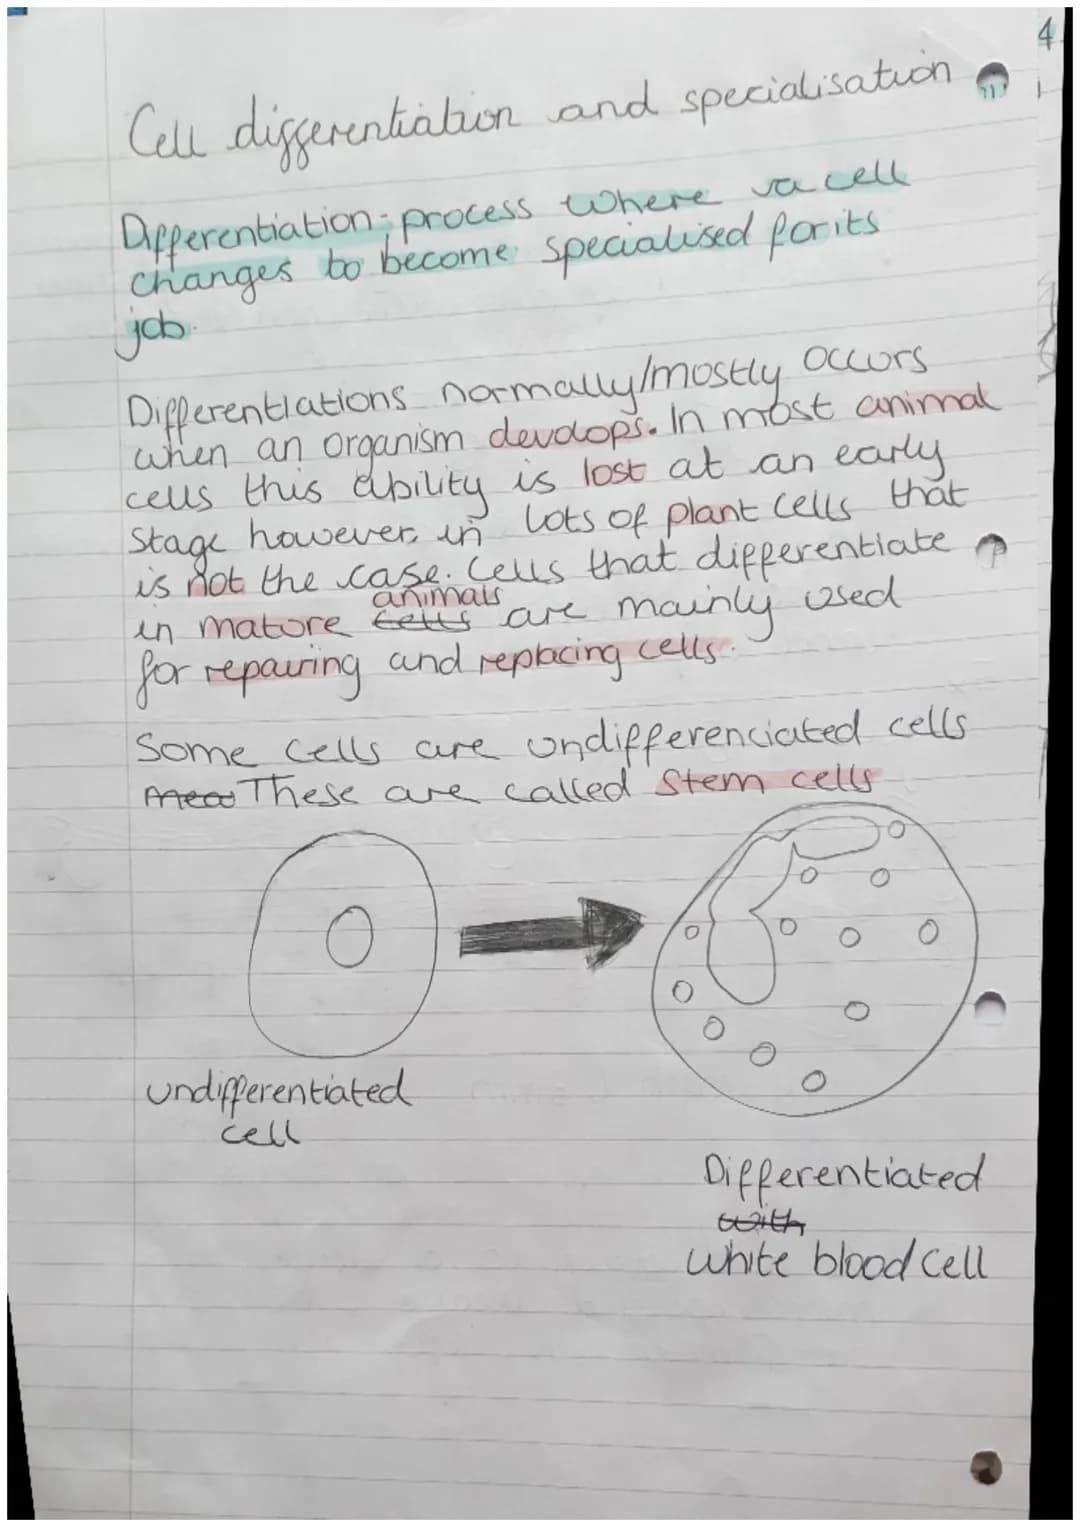 4
Cell differentiation and specialisation
Differentiation:- process where a cell
changes to become specialised for its
job.
Differentiations normally/mostly occurs
when an organism devolops. In most animal
cells this ability is lost at an early
stage however, in lots of plant cells that
is not the case. Cells that differentiate
animals
in mature cells are mainly used
for repairing and replacing cells.
Some cells are undifferenciated cells
These are called stem cells
undifferentiated
cell
Differentiated
with
white blood cell